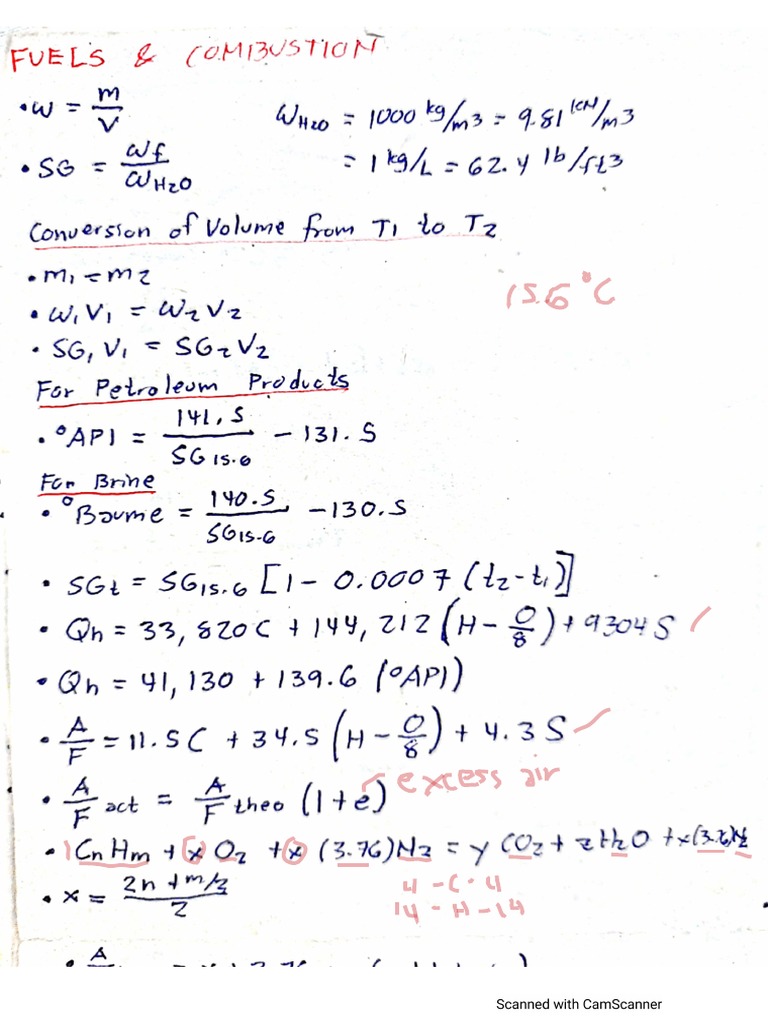 FUELS & COMBUSTION
• w = m/V
W H2O = 1000 kg/m3 = 9.81 kN/m3
• SG = wf/wH2O
= 1 kg/L = 62.4 lb/ft3
Conversion of Volume from T1 to T2
• m1 = m2
15.6°C
• w1V1 = w2V2
• SG1V1 = SG2V2
For Petroleum Products
• °API = 141.5/SG15.6 - 131.5
For Brine
• °Baume = 140.5/SG15.6 - 130.5
• SGt = SG15.6 [1 - 0.0007 (t2 - t1)]
• Qh = 33,820C + 144,212 (H - O/8) + 9304 S
• Qh = 41,130 + 139.6 (°API)
• A/F = 11.5C + 34.5 (H - O/8) + 4.3S
excess air
• A/F act = A/F theo (1+e)
• 1 CnHm + x O2 + x (3.76)N2 = y CO2 + z H2O + x(3.76)N2
• x = 2n + m/2 / 2
4 - C - 4
14 - H - 14
Scanned with CamScanner